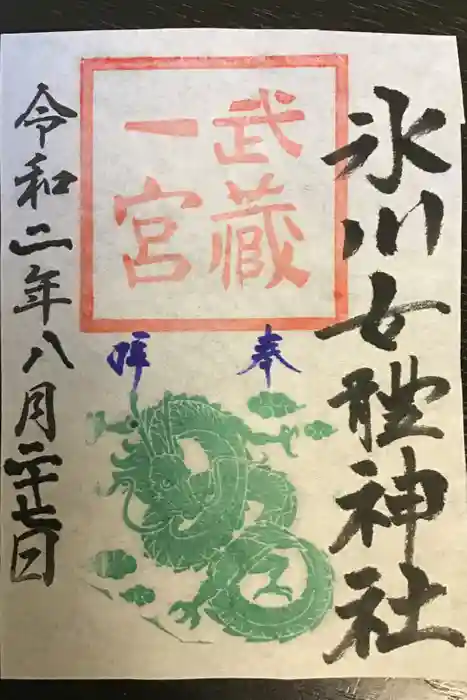 氷川女體神社
武蔵
一宮
奉
拝
令和二年八月二十七日